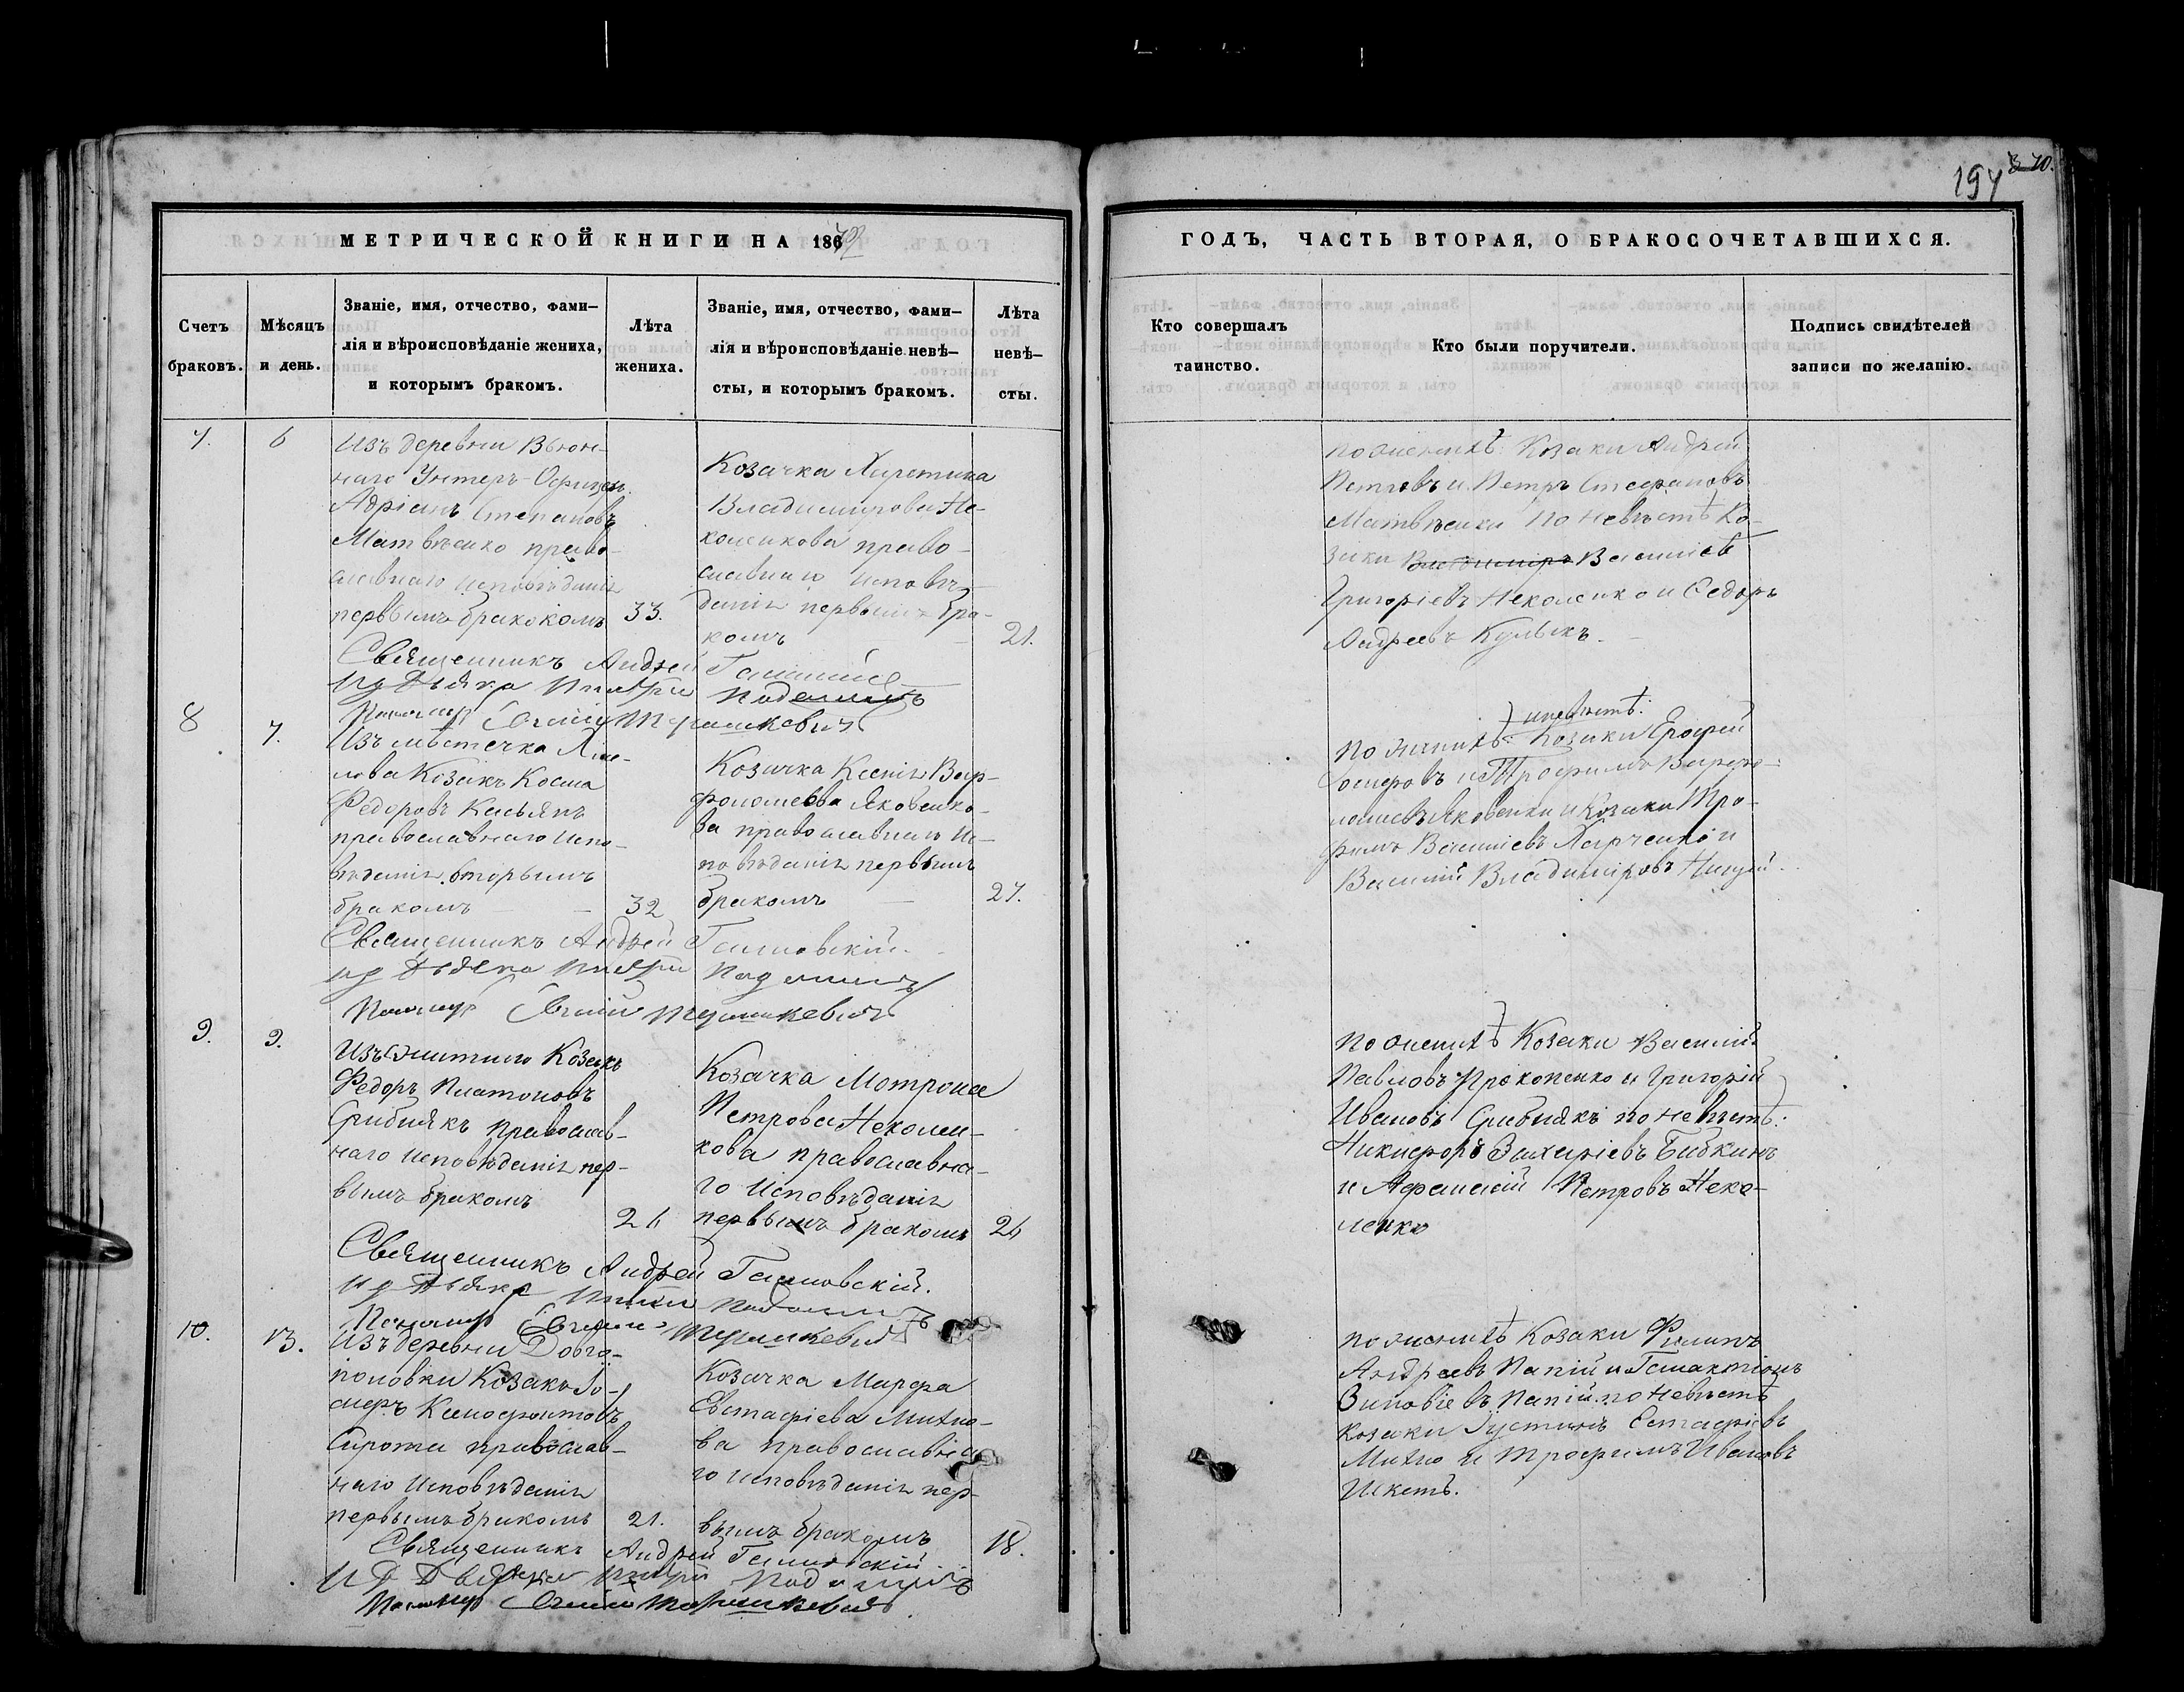 194
МЕТРИЧЕСКОЙ КНИГИ НА 186
ГОДЪ, ЧАСТЬ ВТОРАЯ, О БРАКОСОЧЕТАВШИХСЯ.
Счетъ браковъ.
Мѣсяцъ и день.
Званіе, имя, отчество, фами-
лія и вѣроисповѣданіе жениха,
и которымъ бракомъ.
Лѣта жениха.
Званіе, имя, отчество, фами-
лія и вѣроисповѣданіе невѣ-
сты, и которымъ бракомъ.
Лѣта невѣ-
сты.
Кто совершалъ
таинство.
Кто были поручители.
Подпись свидѣтелей
записи по желанію.
7.
6
Изъ деревни Вьюн-
наго Унтеръ-Офицеръ
Адріанъ Степановъ
Матвѣенко право-
славнаго исповѣданія
первымъ бракомъ
33.
Козачка Харитина
Владимирова Не-
коленкова право-
славнаго исповѣ-
данія первымъ бра-
комъ
21.
Священникъ Андрей
по женихѣ: Козаки Андрей
Петровъ и Петръ Стефановъ
Матвѣенки по невѣстѣ Ко-
заки Василій
Григоріевъ Неколенко и Федоръ
Андреевъ Кулыкъ.
8
7.
Изъ мѣстечка
Козакъ Косма
Федоровъ Касьянъ
православнаго испо-
вѣданія вторымъ
бракомъ
32
Козачка Ксенія Вар-
фоломеева Яковенко-
ва православнаго Ис-
повѣданія первымъ
бракомъ
27.
Священникъ Андрей Галиновскій
и невѣстѣ:
по женихѣ: Козаки Ерофей
и Трофимъ Варфо-
ломеевъ Яковенки и Козаки Тро-
фимъ Василіевъ Харченко и
Василій Владиміровъ
9.
9.
Козакъ
Федоръ Платоновъ
Срибнякъ православ-
наго исповѣданія пер-
вымъ бракомъ
26
Козачка Мотрона
Петрова Неколен-
кова православна-
го исповѣданія
первымъ бракомъ
26
Священникъ Андрей Галиновскій.
по женихѣ Козаки Василій
Павловъ Прокопенко и Григорій
Ивановъ Срибнякъ по невѣстѣ:
Никифоръ Захаріевъ Бибкинъ
и Афанасій Петровъ Неко-
ленко
10.
13.
Изъ деревни Довго-
половки Козакъ Іо-
сифъ Ксенофонтовъ
Сирота православ-
наго Исповѣданія
первымъ бракомъ
21.
Козачка Марфа
Евстафіева Михно-
ва православна-
го исповѣданія пер-
вымъ бракомъ
18.
Священникъ Андрей Галиновскій
по женихѣ Козаки Филипъ
Андреевъ Папій и Галактіонъ
Зиновіевъ Папій. по невѣстѣ
козаки Іустинъ Естафіевъ
Михно и Трофимъ Ивановъ